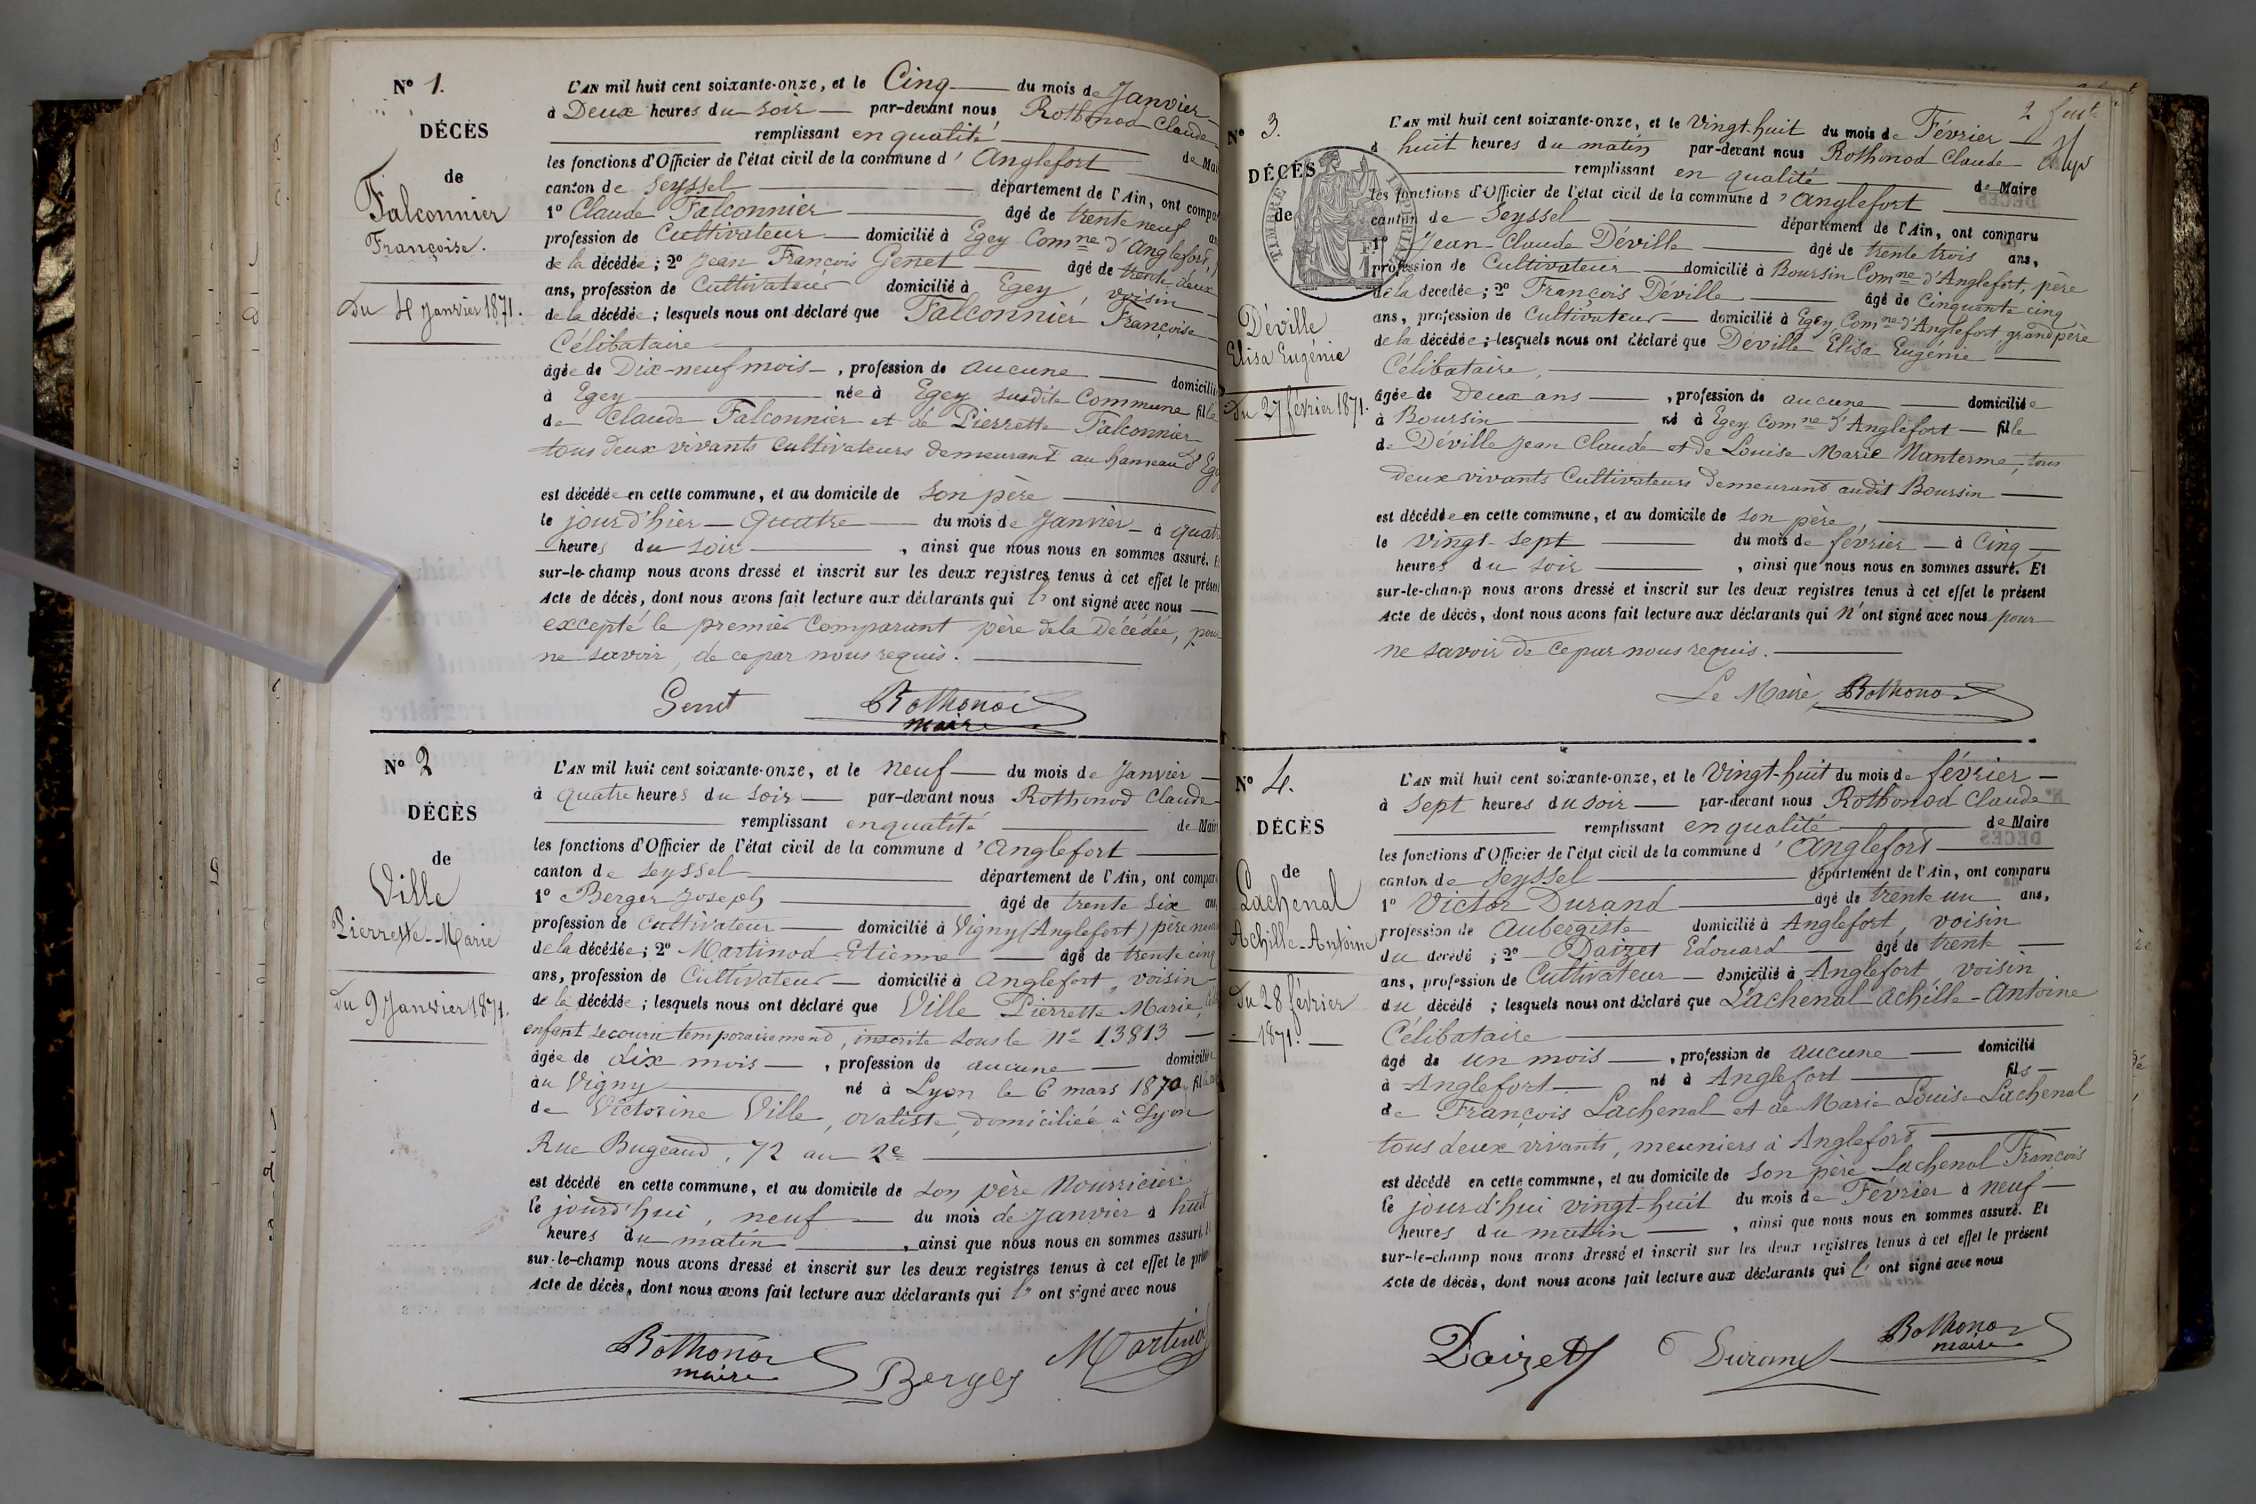 N° 1.
DÉCÈS
de
Falconnier
Françoise.
Du 4 Janvier 1871.
L'AN mil huit cent soixante-onze, et le Cinq du mois de Janvier
à Deux heures du soir par-devant nous Rothonod Claude
remplissant en qualité de Mai
les fonctions d'Officier de l'état civil de la commune d'Anglefort
canton de Seyssel département de l'Ain, ont compa
1° Claude Falconnier âgé de trente neuf an
profession de Cultivateur domicilié à Egey Comne d'Anglefort,
de la décédée ; 2° Jean François Genet âgé de trente deux
ans, profession de Cultivateur domicilié à Egey voisin
de la décédée ; lesquels nous ont déclaré que Falconnier Françoise
Célibataire
âgée de Dix-neuf mois, profession de aucune domicilié
à Egey née à Egey susdite Commune fille
de Claude Falconnier et de Pierrette Falconnier
tous deux vivants Cultivateurs demeurant au hameau d'Egey
est décédée en cette commune, et au domicile de son père
le jourd'hier Quatre du mois de Janvier à quatr
heures du soir, ainsi que nous nous en sommes assuré. E
sur-le-champ nous avons dressé et inscrit sur les deux registres tenus à cet effet le présen
Acte de décès, dont nous avons fait lecture aux déclarants qui l' ont signé avec nous
excepté le premier Comparant père de la Décédée, pour
ne savoir, de ce par nous requis.
Genet Rothonod
maire
N° 2
DÉCÈS
de
Ville
Pierrette-Marie
du 9 Janvier 1871.
L'AN mil huit cent soixante-onze, et le neuf du mois de Janvier
à quatre heures du soir par-devant nous Rothonod Claude
remplissant en qualité de Maire
les fonctions d'Officier de l'état civil de la commune d'Anglefort
canton de Seyssel département de l'Ain, ont compar
1° Berger Joseph âgé de trente six ans,
profession de Cultivateur domicilié à Vigny (Anglefort) père nour
de la décédée ; 2° Martinod Etienne âgé de trente cinq
ans, profession de Cultivateur domicilié à Anglefort, voisin
de la décédée ; lesquels nous ont déclaré que Ville Pierrette Marie,
enfant secouru temporairement, inscrite sous le N° 13813
âgée de dix mois, profession de aucune domicilié
au Vigny né à Lyon le 6 mars 1870, fille
de Victorine Ville, ovaliste, domiciliée à Lyon
Rue Bugeaud, 72 au 2e
est décédé en cette commune, et au domicile de son père Nourricier
le jourd'hui, neuf du mois de Janvier à huit
heures du matin, ainsi que nous nous en sommes assuré.
sur-le-champ nous avons dressé et inscrit sur les deux registres tenus à cet effet le prés
Acte de décès, dont nous avons fait lecture aux déclarants qui l' ont signé avec nous
Rothonod Berger Martinod
maire
N° 3.
DÉCÈS
de
Déville
Elisa Eugénie
Du 27 février 1871.
TIMBRE IMPÉRIAL
1 F
L'AN mil huit cent soixante-onze, et le Vingt-huit du mois de Février
à huit heures du matin par-devant nous Rothonod Claude
remplissant en qualité de Maire
les fonctions d'Officier de l'état civil de la commune d'Anglefort
canton de Seyssel département de l'Ain, ont comparu
1° Jean-Claude Déville âgé de trente trois ans,
profession de Cultivateur domicilié à Boursin Comne d'Anglefort, père
de la décédée ; 2° François Déville âgé de Cinquante cinq
ans, profession de Cultivateur domicilié à Egey Comne d'Anglefort, grand père
de la décédée ; lesquels nous ont déclaré que Déville Elisa Eugénie
Célibataire,
âgée de Deux ans, profession de aucune domiciliée
à Boursin né à Egey Comne d'Anglefort fille
de Déville Jean Claude et de Louise Marie Nanterme, tous
deux vivants Cultivateurs demeurant audit Boursin
est décédée en cette commune, et au domicile de son père
le vingt-sept du mois de février à Cinq
heures du soir, ainsi que nous nous en sommes assuré. Et
sur-le-champ nous avons dressé et inscrit sur les deux registres tenus à cet effet le présent
Acte de décès, dont nous avons fait lecture aux déclarants qui n'ont signé avec nous pour
ne savoir de ce par nous requis.
Le Maire, Rothonod
N° 4.
DÉCÈS
de
Lachenal
Achille-Antoine
Du 28 février
1871.
L'AN mil huit cent soixante-onze, et le Vingt-huit du mois de février
à sept heures du soir par-devant nous Rothonod Claude
remplissant en qualité de Maire
les fonctions d'Officier de l'état civil de la commune d'Anglefort
canton de Seyssel département de l'Ain, ont comparu
1° Victor Durand âgé de trente un ans,
profession de Aubergiste domicilié à Anglefort, voisin
du décédé ; 2° Daizet Edouard âgé de trente
ans, profession de Cultivateur domicilié à Anglefort, voisin
du décédé ; lesquels nous ont déclaré que Lachenal Achille-Antoine
Célibataire
âgé de un mois, profession de aucune domicilié
à Anglefort né à Anglefort fils
de François Lachenal et de Marie Louise Lachenal
tous deux vivants, meuniers à Anglefort
est décédé en cette commune, et au domicile de son père Lachenal François
le jourd'hui vingt-huit du mois de Février à neuf
heures du matin, ainsi que nous nous en sommes assuré. Et
sur-le-champ nous avons dressé et inscrit sur les deux registres tenus à cet effet le présent
Acte de décès, dont nous avons fait lecture aux déclarants qui l' ont signé avec nous
Daizet Durand Rothonod
maire